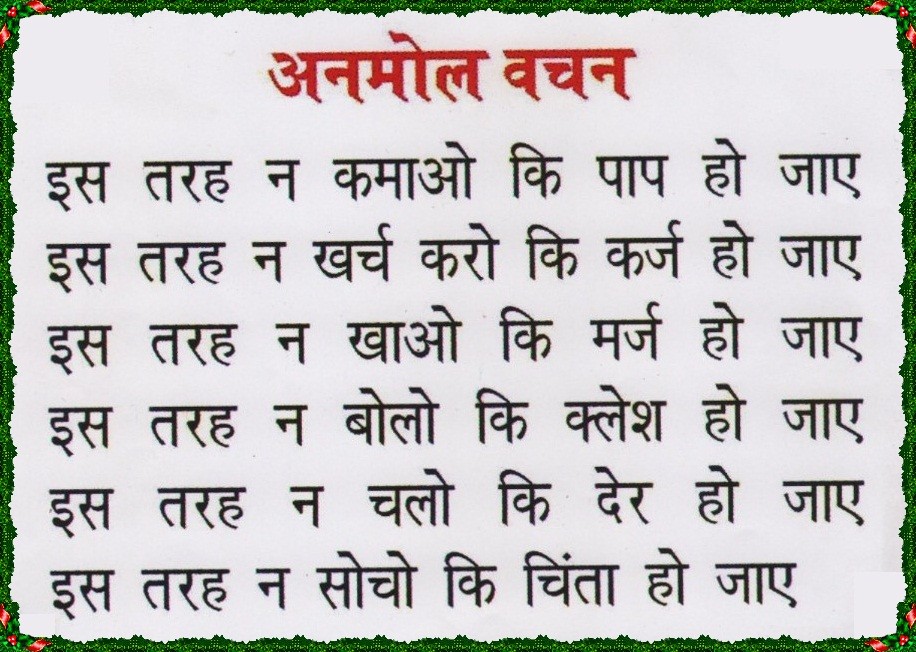 अनमोल वचन
इस तरह न कमाओ कि पाप हो जाए
इस तरह न खर्च करो कि कर्ज हो जाए
इस तरह न खाओ कि मर्ज हो जाए
इस तरह न बोलो कि क्लेश हो जाए
इस तरह न चलो कि देर हो जाए
इस तरह न सोचो कि चिंता हो जाए